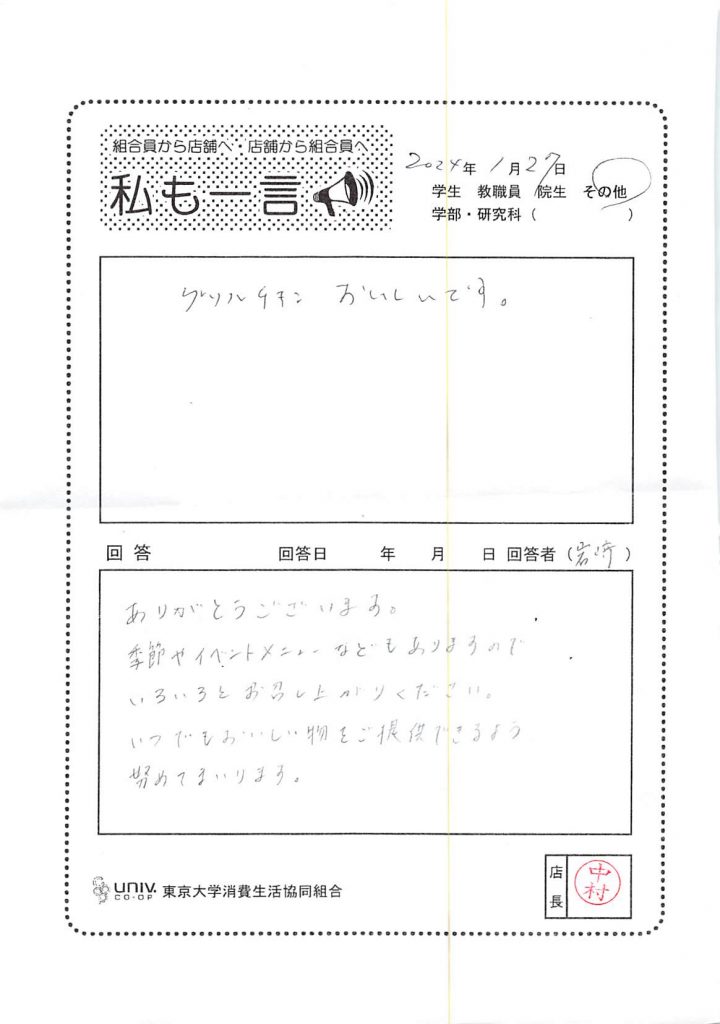 組合員から店舗へ・店舗から組合員へ
私も一言
2024年 1月27日
学生 教職員 院生 その他
学部・研究科( )
グリルチキン おいしいです。
回答 回答日 年 月 日 回答者(岩崎)
ありがとうございます。
季節やイベントメニューなどもありますので
いろいろとお召し上がりください。
いつでもおいしい物をご提供できるよう
努めてまいります。
UNIV.
CO-OP
東京大学消費生活協同組合
店長
中村